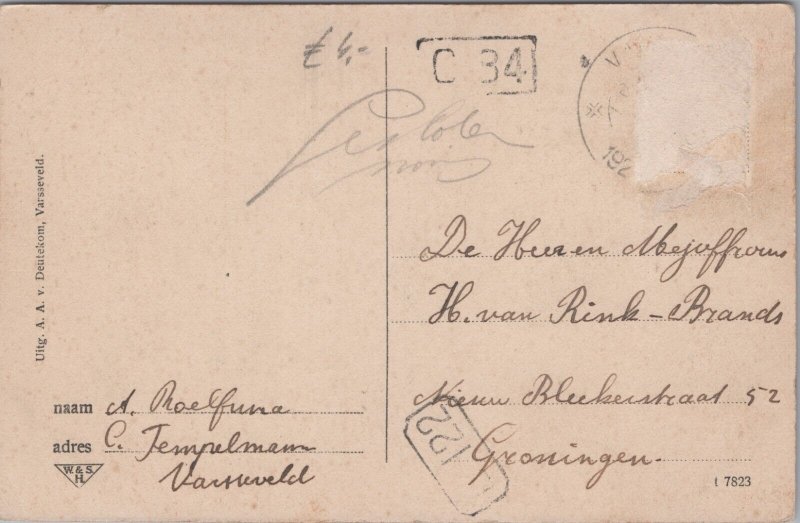 £ 4,-
C 34
192
Uitg. A. A. v. Deutekom, Varsseveld.
De Heer en Mejuffrouw
H. van Rink - Brands
Nieuw Blekerstraat 52
Groningen.
122
naam A. Roelfsma
adres C. Tempelmann
Varsseveld
W. & S.
H.
t 7823